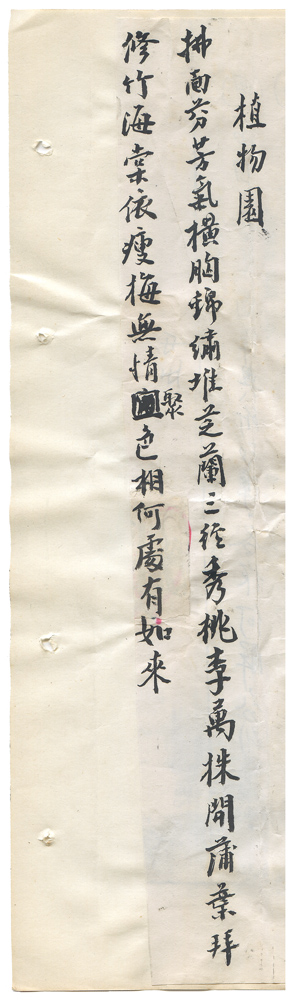 植物園
拂面芬芳氣橫胸錦繡堆芝蘭三徑秀桃李萬株開蒲葉拜
修竹海棠依瘦梅無情聚色相何處有如來